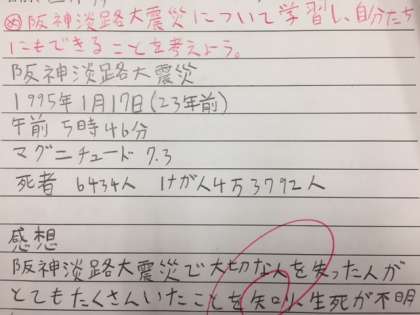 め阪神淡路大震災について学習し、自分たち
にもできることを考えよう。
阪神淡路大震災
1995年1月17日(23年前)
午前 5時46分
マグニチュード 7.3
死者 6434人 けが人4万3792人
感想
阪神淡路大震災で大切な人を失った人が
とてもたくさんいたことを知り、生死が不明